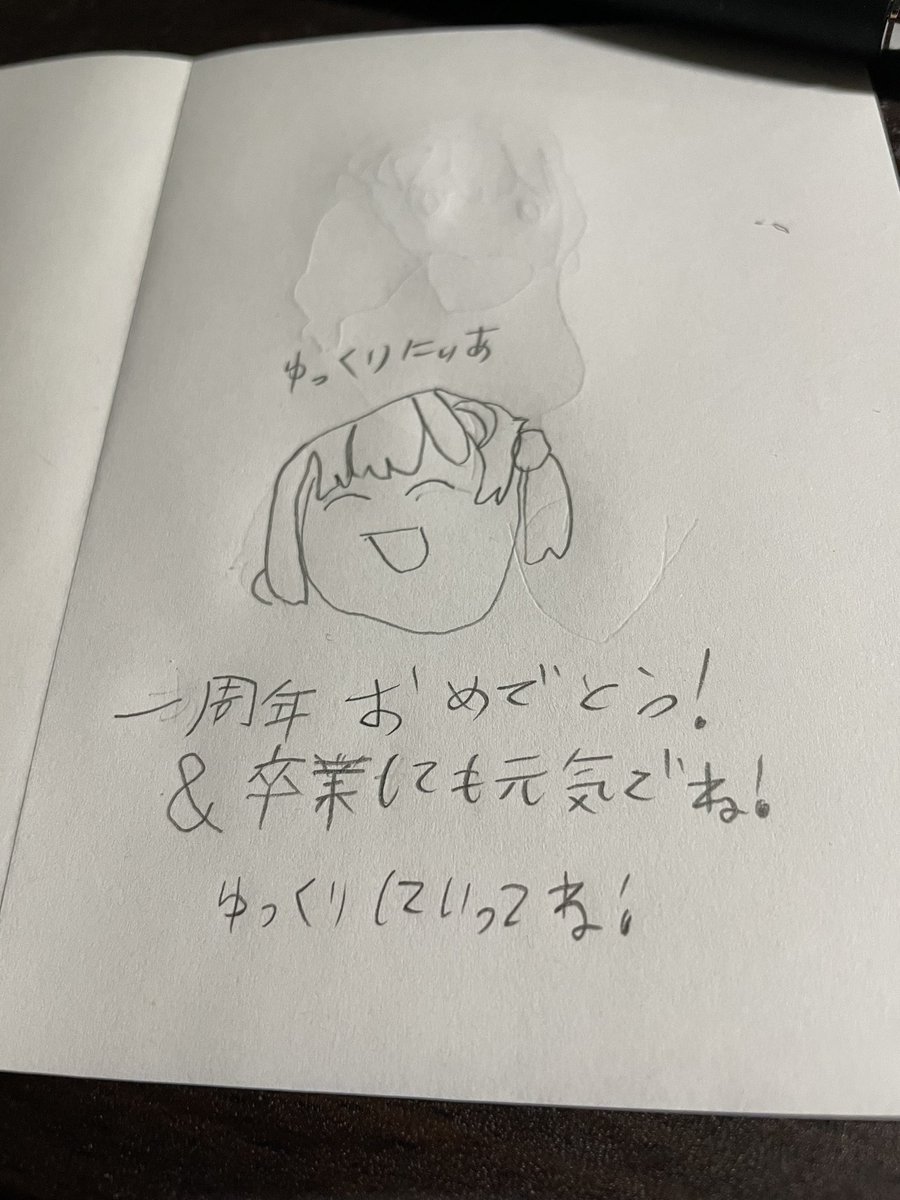 ゆっくりにぃあ
一周年おめでとう!
&卒業しても元気でね!
ゆっくりしていってね!